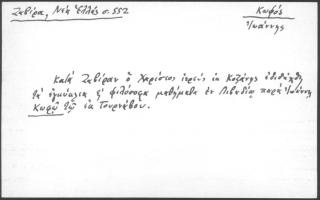 Ζαβίρα, Νέα Ἑλλάς σ. 552
Κωφός
Ἰωάννης
Κατά Ζαβίραν ὁ Χαρίσιος ἱερεύς ἐκ Κοζάνης ἐδιδάχθη
τά ἐγκύκλια ϗ φιλόσοφα μαθήματα ἐν Λιβαδίῳ παρά Ἰωάννῃ
Κωφῷ τῷ ἐκ Τουρνάβου.